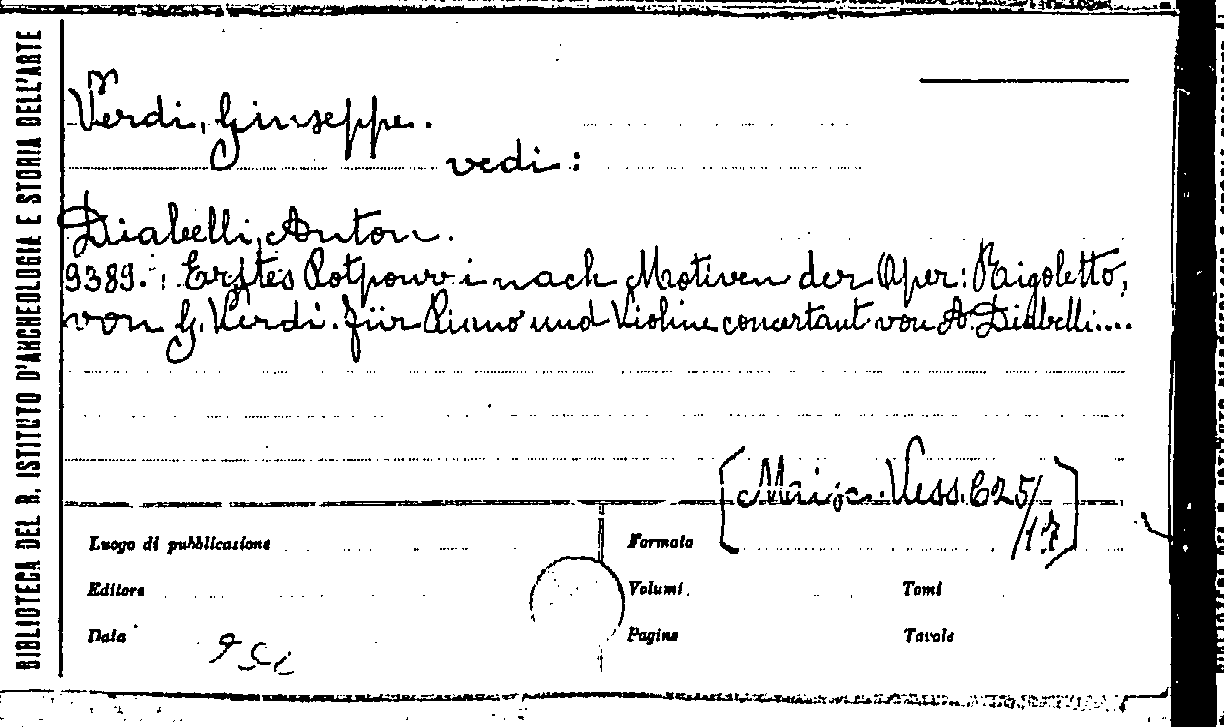 BIBLIOTECA DEL R. ISTITUTO D'ARCHEOLOGIA E STORIA DELL'ARTE
Verdi, Giuseppe.
vedi:
Diabelli, Anton.
9389.: Erstes Potpourri nach Motiven der Oper: Rigoletto,
von G. Verdi. für Piano und Violine concertant von A. Diabelli....
Vess. C25/17]
Luogo di pubblicazione
Formato
Editore
Volumi
Tomi
Data
Pagine
Tavole